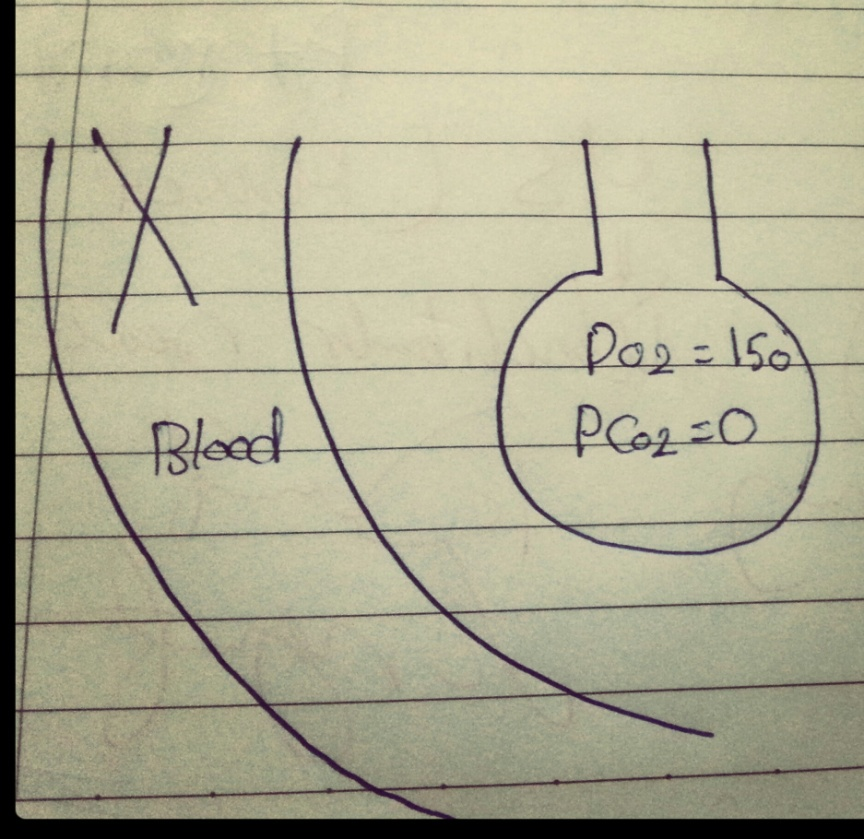 X
Blood
PO2 = 150
PCO2 = 0